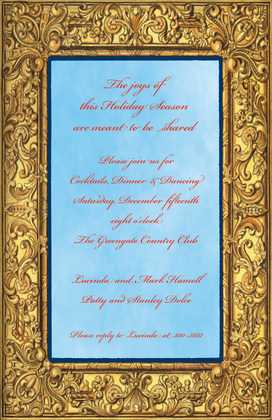 The joys of
this Holiday Season
are meant to be shared
Please join us for
Cocktails, Dinner & Dancing
Saturday, December fifteenth
eight o'clock
The Greengate Country Club
Lucinda and Mark Hamell
Patty and Stanley Dolce
Please reply to Lucinda at